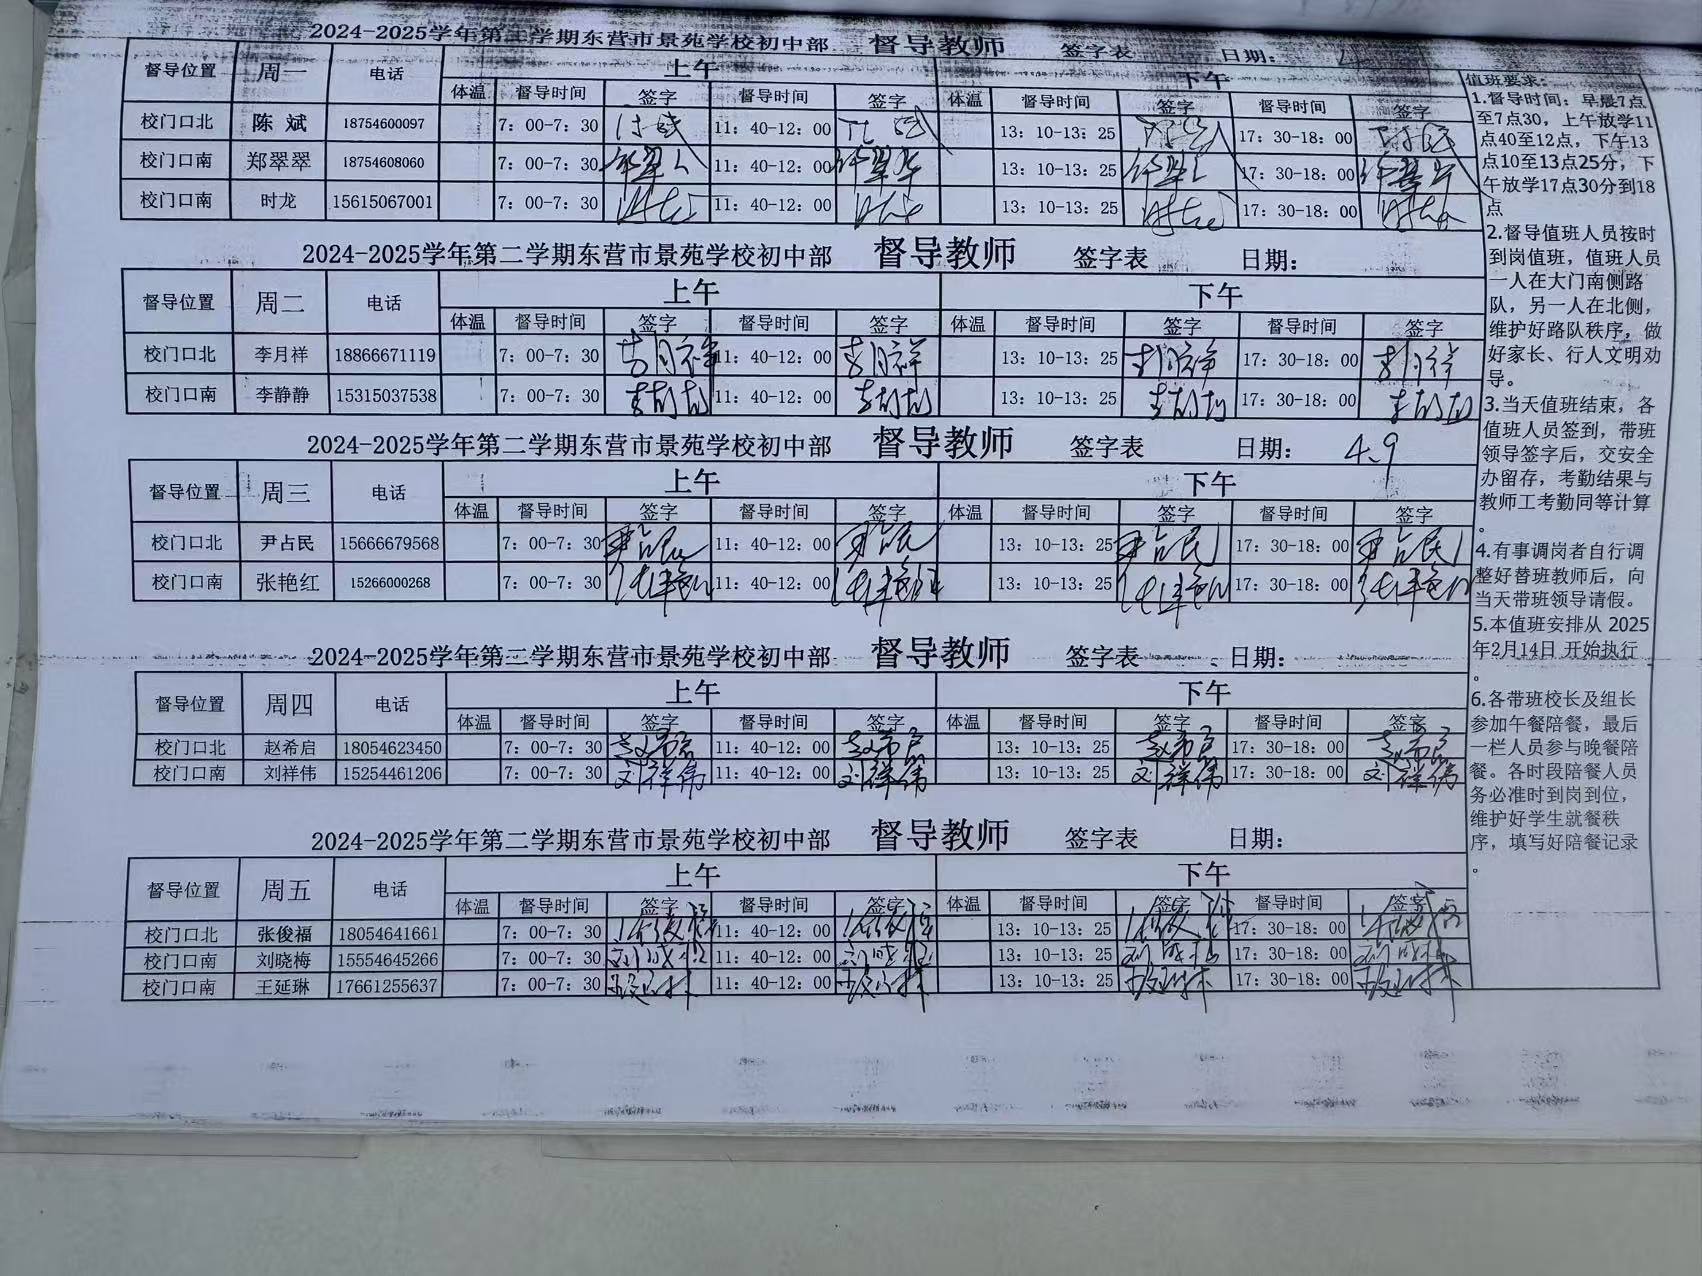 2024-2025学年第二学期东营市景苑学校初中部 督导教师 签字表 日期:
督导位置 周一 电话 上午 下午
体温 督导时间 签字 督导时间 签字 体温 督导时间 签字 督导时间 签字
校门口北 陈 斌 18754600097 7: 00-7: 30 11: 40-12: 00 13: 10-13: 25 17: 30-18: 00
校门口南 郑翠翠 18754608060 7: 00-7: 30 11: 40-12: 00 13: 10-13: 25 17: 30-18: 00
校门口南 时龙 15615067001 7: 00-7: 30 时龙 11: 40-12: 00 时龙 13: 10-13: 25 时龙 17: 30-18: 00 时龙
2024-2025学年第二学期东营市景苑学校初中部 督导教师 签字表 日期:
督导位置 周二 电话 上午 下午
体温 督导时间 签字 督导时间 签字 体温 督导时间 签字 督导时间 签字
校门口北 李月祥 18866671119 7: 00-7: 30 李月祥 11: 40-12: 00 李月祥 13: 10-13: 25 李月祥 17: 30-18: 00 李月祥
校门口南 李静静 15315037538 7: 00-7: 30 李静静 11: 40-12: 00 李静静 13: 10-13: 25 李静静 17: 30-18: 00 李静静
2024-2025学年第二学期东营市景苑学校初中部 督导教师 签字表 日期: 4.9
督导位置 周三 电话 上午 下午
体温 督导时间 签字 督导时间 签字 体温 督导时间 签字 督导时间 签字
校门口北 尹占民 15666679568 7: 00-7: 30 尹占民 11: 40-12: 00 尹占民 13: 10-13: 25 尹占民 17: 30-18: 00 尹占民
校门口南 张艳红 15266000268 7: 00-7: 30 张艳红 11: 40-12: 00 张艳红 13: 10-13: 25 张艳红 17: 30-18: 00 张艳红
2024-2025学年第二学期东营市景苑学校初中部 督导教师 签字表 日期:
督导位置 周四 电话 上午 下午
体温 督导时间 签字 督导时间 签字 体温 督导时间 签字 督导时间 签字
校门口北 赵希启 18054623450 7: 00-7: 30 赵希启 11: 40-12: 00 赵希启 13: 10-13: 25 赵希启 17: 30-18: 00 赵希启
校门口南 刘祥伟 15254461206 7: 00-7: 30 刘祥伟 11: 40-12: 00 刘祥伟 13: 10-13: 25 刘祥伟 17: 30-18: 00 刘祥伟
2024-2025学年第二学期东营市景苑学校初中部 督导教师 签字表 日期:
督导位置 周五 电话 上午 下午
体温 督导时间 签字 督导时间 签字 体温 督导时间 签字 督导时间 签字
校门口北 张俊福 18054641661 7: 00-7: 30 张俊福 11: 40-12: 00 张俊福 13: 10-13: 25 张俊福 17: 30-18: 00 张俊福
校门口南 刘晓梅 15554645266 7: 00-7: 30 刘晓梅 11: 40-12: 00 刘晓梅 13: 10-13: 25 刘晓梅 17: 30-18: 00 刘晓梅
校门口南 王延琳 17661255637 7: 00-7: 30 王延琳 11: 40-12: 00 王延琳 13: 10-13: 25 王延琳 17: 30-18: 00 王延琳
值班要求:
1.督导时间: 早晨7点
至7点30, 上午放学11
点40至12点, 下午13
点10至13点25分, 下
午放学17点30分到18
点
2.督导值班人员按时
到岗值班, 值班人员
一人在大门南侧路
队, 另一人在北侧,
维护好路队秩序, 做
好家长、行人文明劝
导。
3.当天值班结束, 各
值班人员签到, 带班
领导签字后, 交安全
办留存, 考勤结果与
教师工考勤同等计算
。
4.有事调岗者自行调
整好替班教师后, 向
当天带班领导请假。
5.本值班安排从 2025
年2月14日 开始执行
。
6.各带班校长及组长
参加午餐陪餐, 最后
一栏人员参与晚餐陪
餐。各时段陪餐人员
务必准时到岗到位,
维护好学生就餐秩
序, 填写好陪餐记录
。